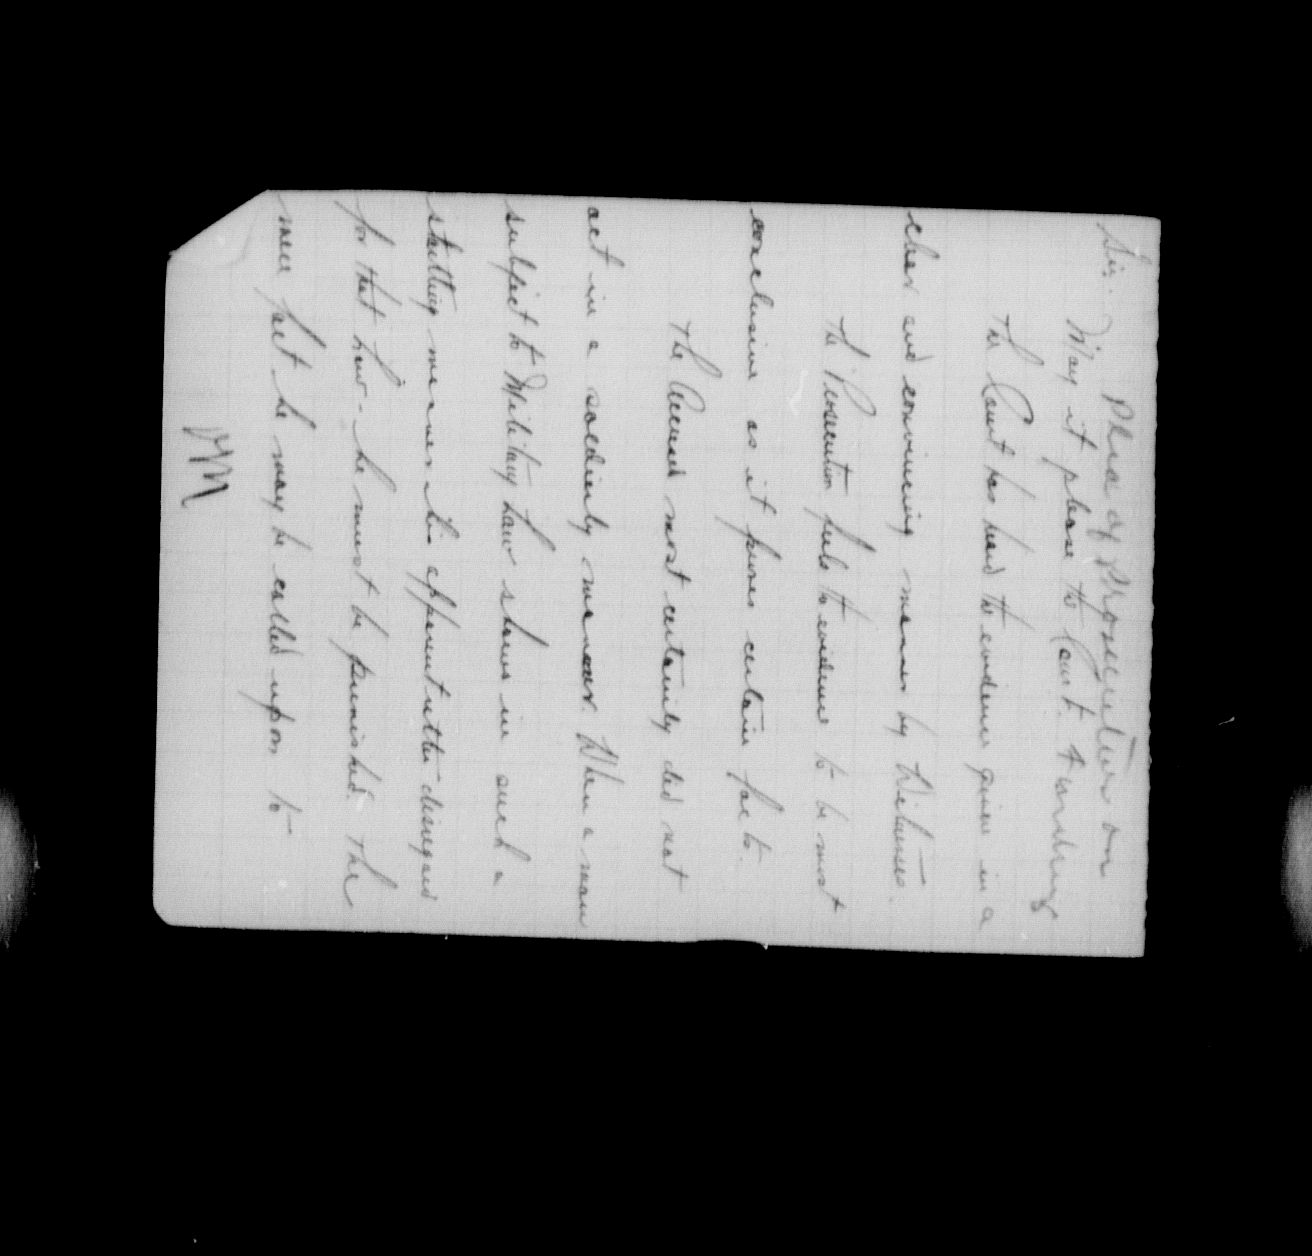 Plea of Prosecution on
Sir.
May it please the Court. Awarding
The Court has heard the evidence given in a
clear and convincing manner by Witnesses.
The Prosecution feels the evidence to be most
conclusive as it proves certain facts
The Accused most certainly did not
act in a soldierly manner. When a man
subject to Military Law shows in such a
startling manner his apparent utter disregard
for that Law - he must be punished. The
mere fact he may be called upon to